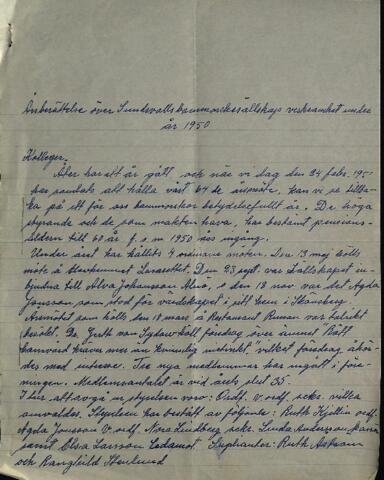 Årsberättelse över Sundsvalls barnmorskesällskaps verksamhet under
år 1950
Kolleger.
Åter har ett år gått och när vi idag den 24 febr. 195-
har samlats att hålla vårt 67 de årsmöte, kan vi se tillba-
ka på ett för oss barnmorskor betydelsefullt år. De höga
styrande och de som makten hava, har bestämt pensions-
åldern till 60 år f. o. m 1950 års ingång.
Under året har hållits 4 ordinarie möten. Den 13 maj hölls
möte å Barnhemmet Lasarettet. Den 23 sept. var Sällskapet in-
bjudna till Alva Johansson Alnö, o den 18 nov. var det Agda
Jonsson som stod för värdskapet i sitt hem i Skönsberg
Årsmötet som hölls den 18 mars å Restaurant Runan var talrikt
besökt. Dr. Greth von Sydow höll föredrag över ämnet "Rätt
barnavård kräver mer än kvinnlig instinkt", vilket föredrag åhör-
des med intresse. Tre nya medlemmar har ingått i före-
ningen. Medlemsantalet är vid årets slut 35.
I tur att avgå ur styrelsen voro: Ordf. v. ordf. sekr. vilka
omvaldes. Styrelsen har bestått av följande: Ruth Kjellin ordf.
Agda Jonsson V. ordf. Nora Lindberg sekr. Linda Andersson
samt Elsa Larsson Ledamot. Supleanter: Ruth
och Ragnhild Stenlund